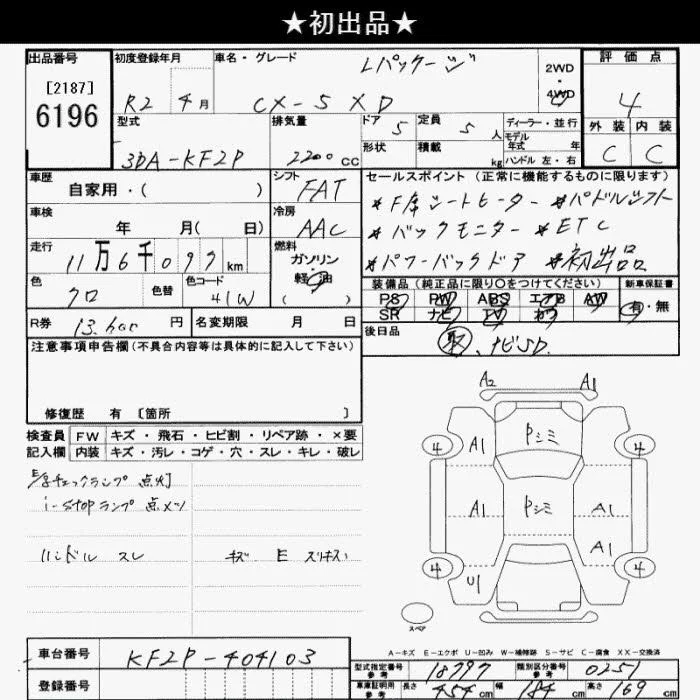 ★初出品★
出品番号 初度登録年月 車名・グレード Lパッケージ 2WD・4WD 評価点
[2187]
6196
R2 4月 CX-5 XD 4
型式 排気量 ドア 5 定員 5人 ディーラー・並行 外装 内装
3DA-KF2P 2200cc 形状 積載 kg モデル年式 年 ハンドル 左・右 C C
車歴 自家用・( ) シフト FAT セールスポイント (正常に機能するものに限ります)
*F席シートヒーター *パドルシフト
車検 年 月( 日) 冷房 AAC *バックモニター *ETC
走行 11万6千097km 燃料 ガソリン・軽油 ( ) *パワーバックドア *初出品
色 クロ 色替 色コード 41W 装備品 (純正品に限り○をつけてください) 新車保証書
PS PW ABS エアB AW 有・無
SR ナビ TV カワ
R券 13,600円 名変期限 月 日 後日品
取、ナビSD
注意事項申告欄 (不具合内容等は具体的に記入して下さい)
修復歴 有 [箇所 ]
検査員記入欄 FW キズ・飛石・ヒビ割・リペア跡・×要
内装 キズ・汚レ・コゲ・穴・スレ・キレ・破レ
チェックランプ 点灯
i-stopランプ 点メツ
ハンドル スレ キズ E スリキズ
A2 A1
4 A1 Pシミ 4
A1 Pシミ A1
A1
4 U1 4
スペア
A-キズ E-エクボ U-凹み W-補修跡 S-サビ C-腐食 XX-交換済
車台番号 KF2P-404103
型式指定番号 参考 18797 類別区分番号 参考 0251
登録番号 車庫証明用 参考 長さ 454cm 幅 184cm 高さ 169cm